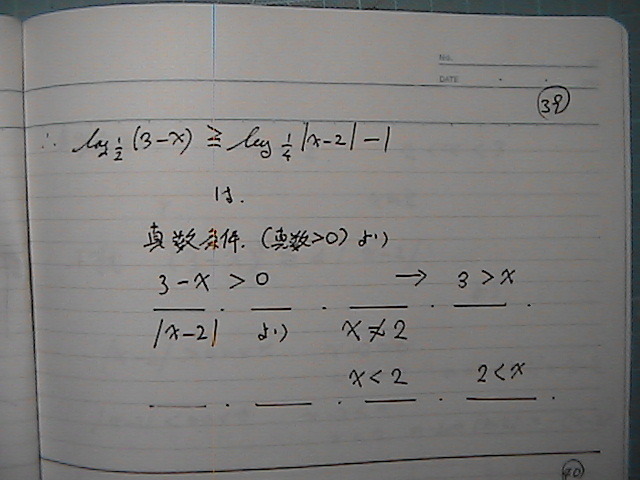 No.
DATE
39
∴ log 1/2 (3-x) ≧ log 1/4 |x-2| -1
は.
真数条件. (真数>0) より
3-x > 0 → 3 > x
|x-2| より x≠2
x<2 2<x
40